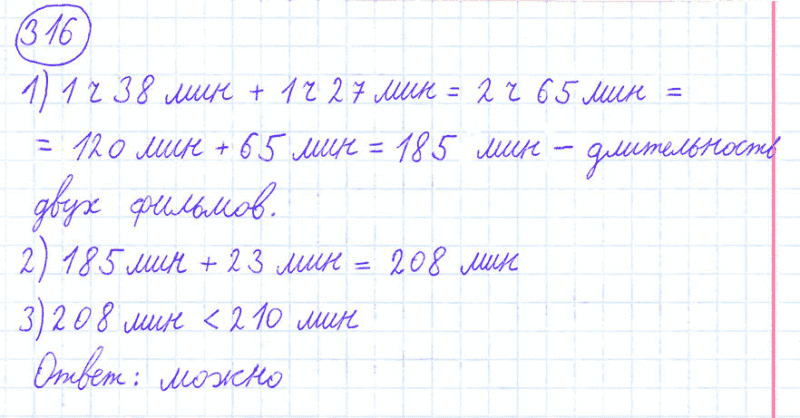 316
1) 1 ч 38 мин + 1 ч 27 мин = 2 ч 65 мин =
= 120 мин + 65 мин = 185 мин – длительность
двух фильмов.
2) 185 мин + 23 мин = 208 мин
3) 208 мин < 210 мин
Ответ: можно